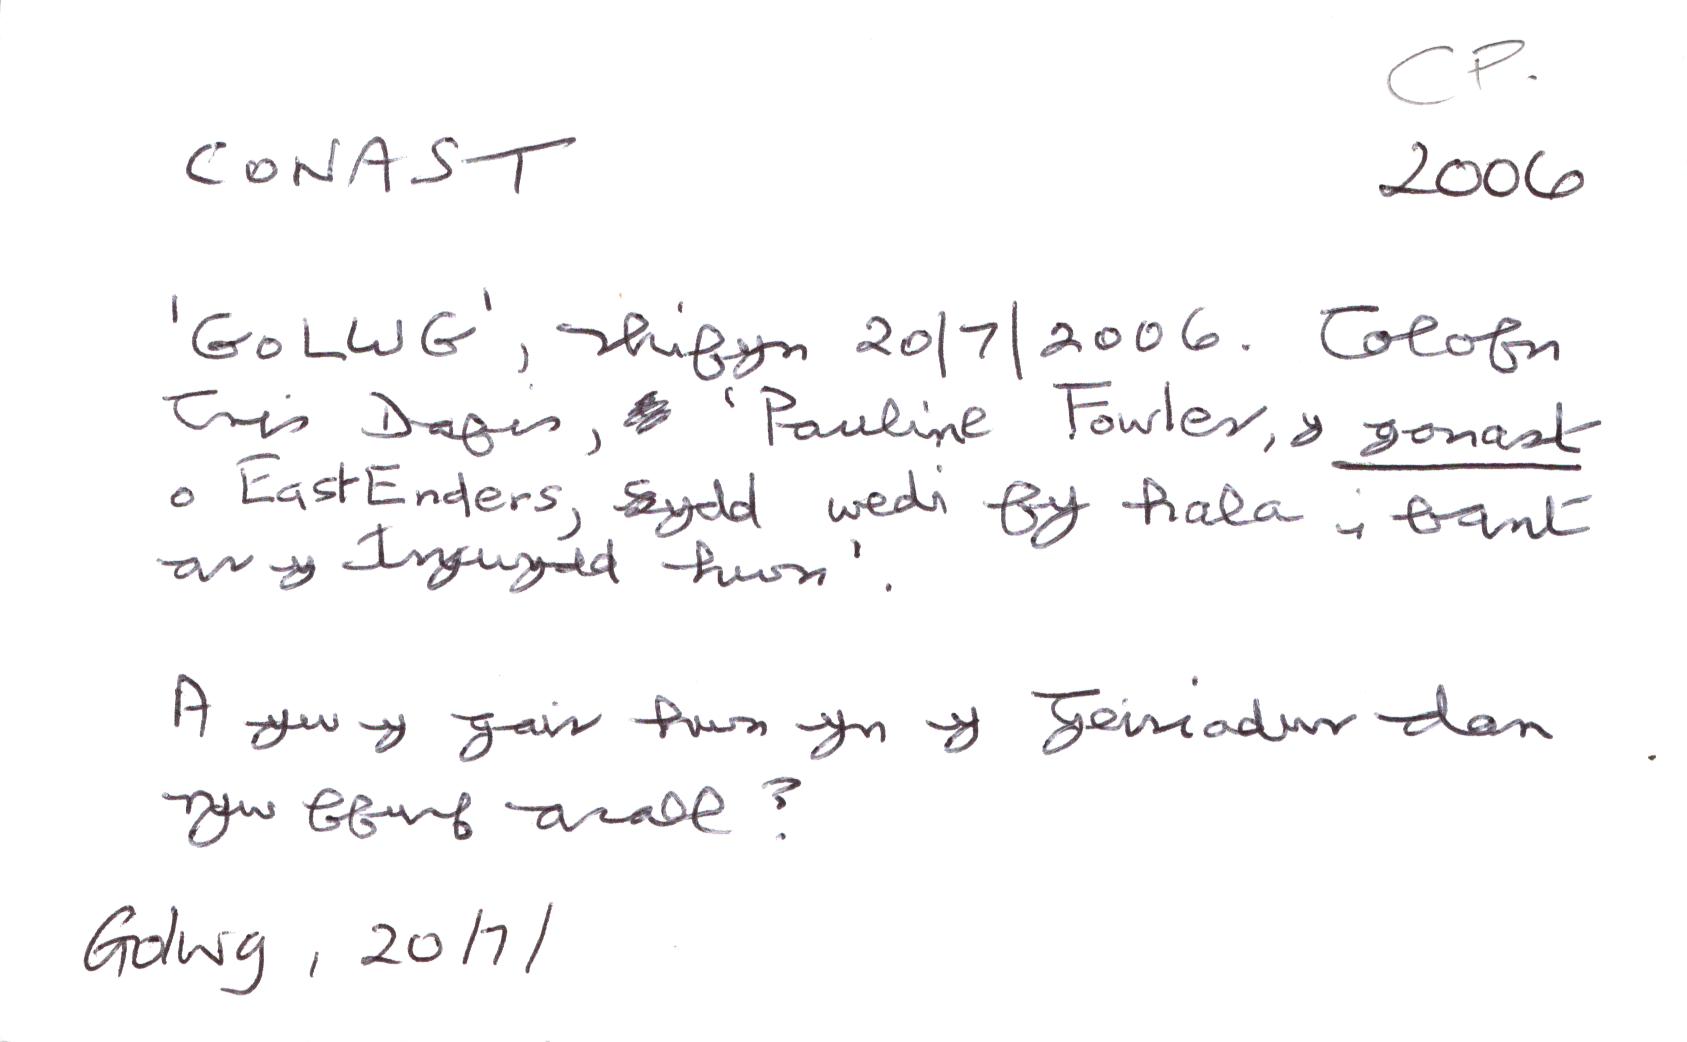 CP.
CONAST 2006
'GOLWG', rhifyn 20/7/2006. Colofn
Cris Dafis, 'Pauline Fowler, y gonast
o EastEnders, sydd wedi fy hala i bant
ar y trywydd hwn'.
A yw y gair hwn yn y Geiriadur dan
ryw ffurf arall?
Golwg, 20/7/